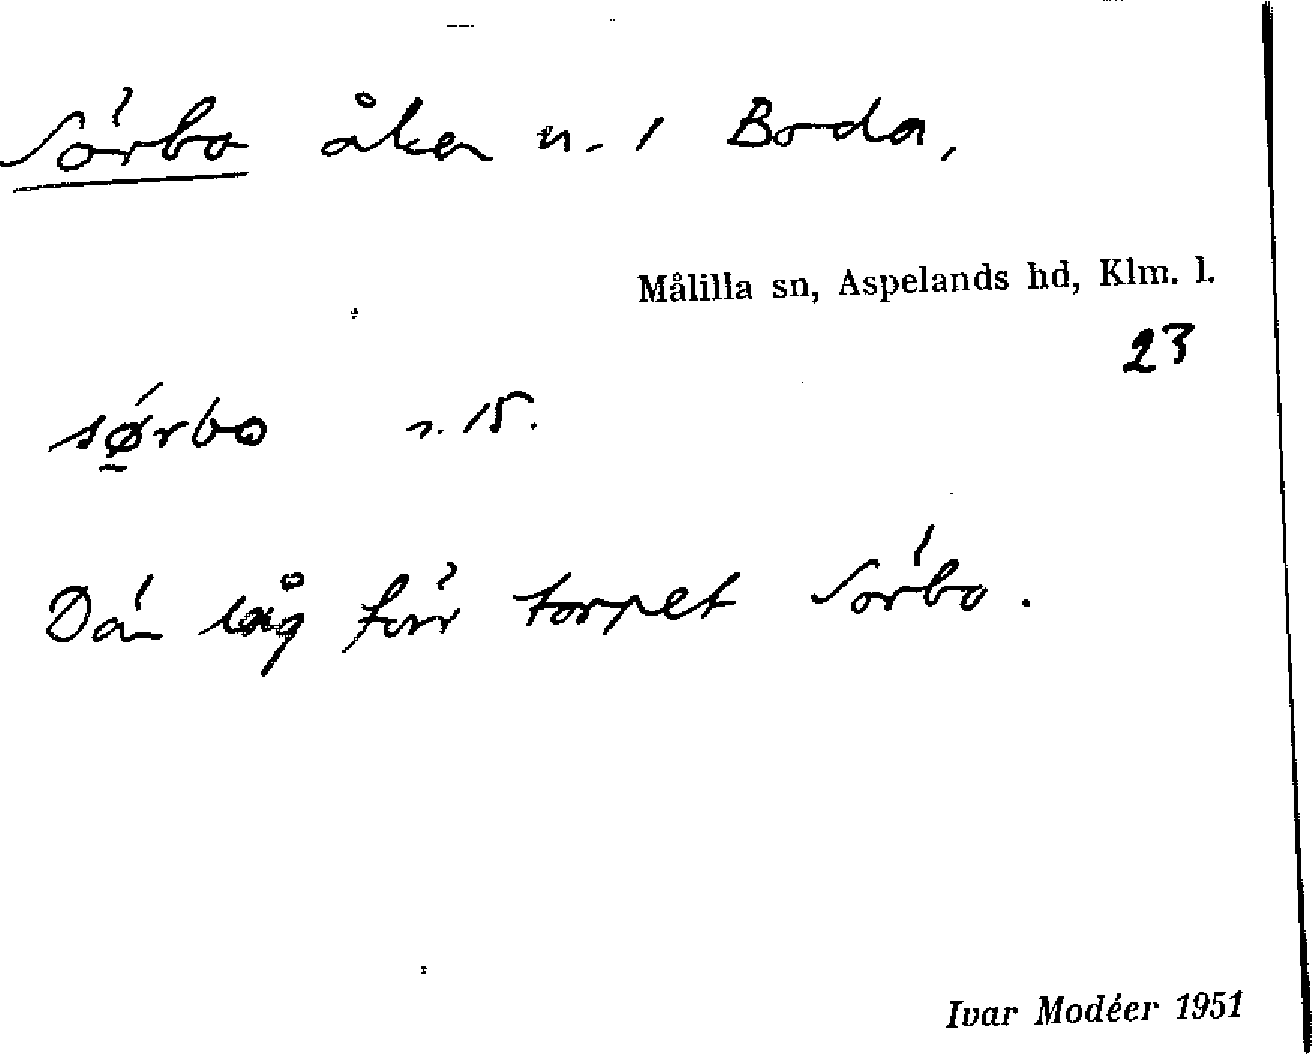 Sörbo åker n. 1 Boda,
Målilla sn, Aspelands hd, Klm. l.
23
sø̱rbo s. 15.
Där låg förr torpet Sörbo.
Ivar Modéer 1951